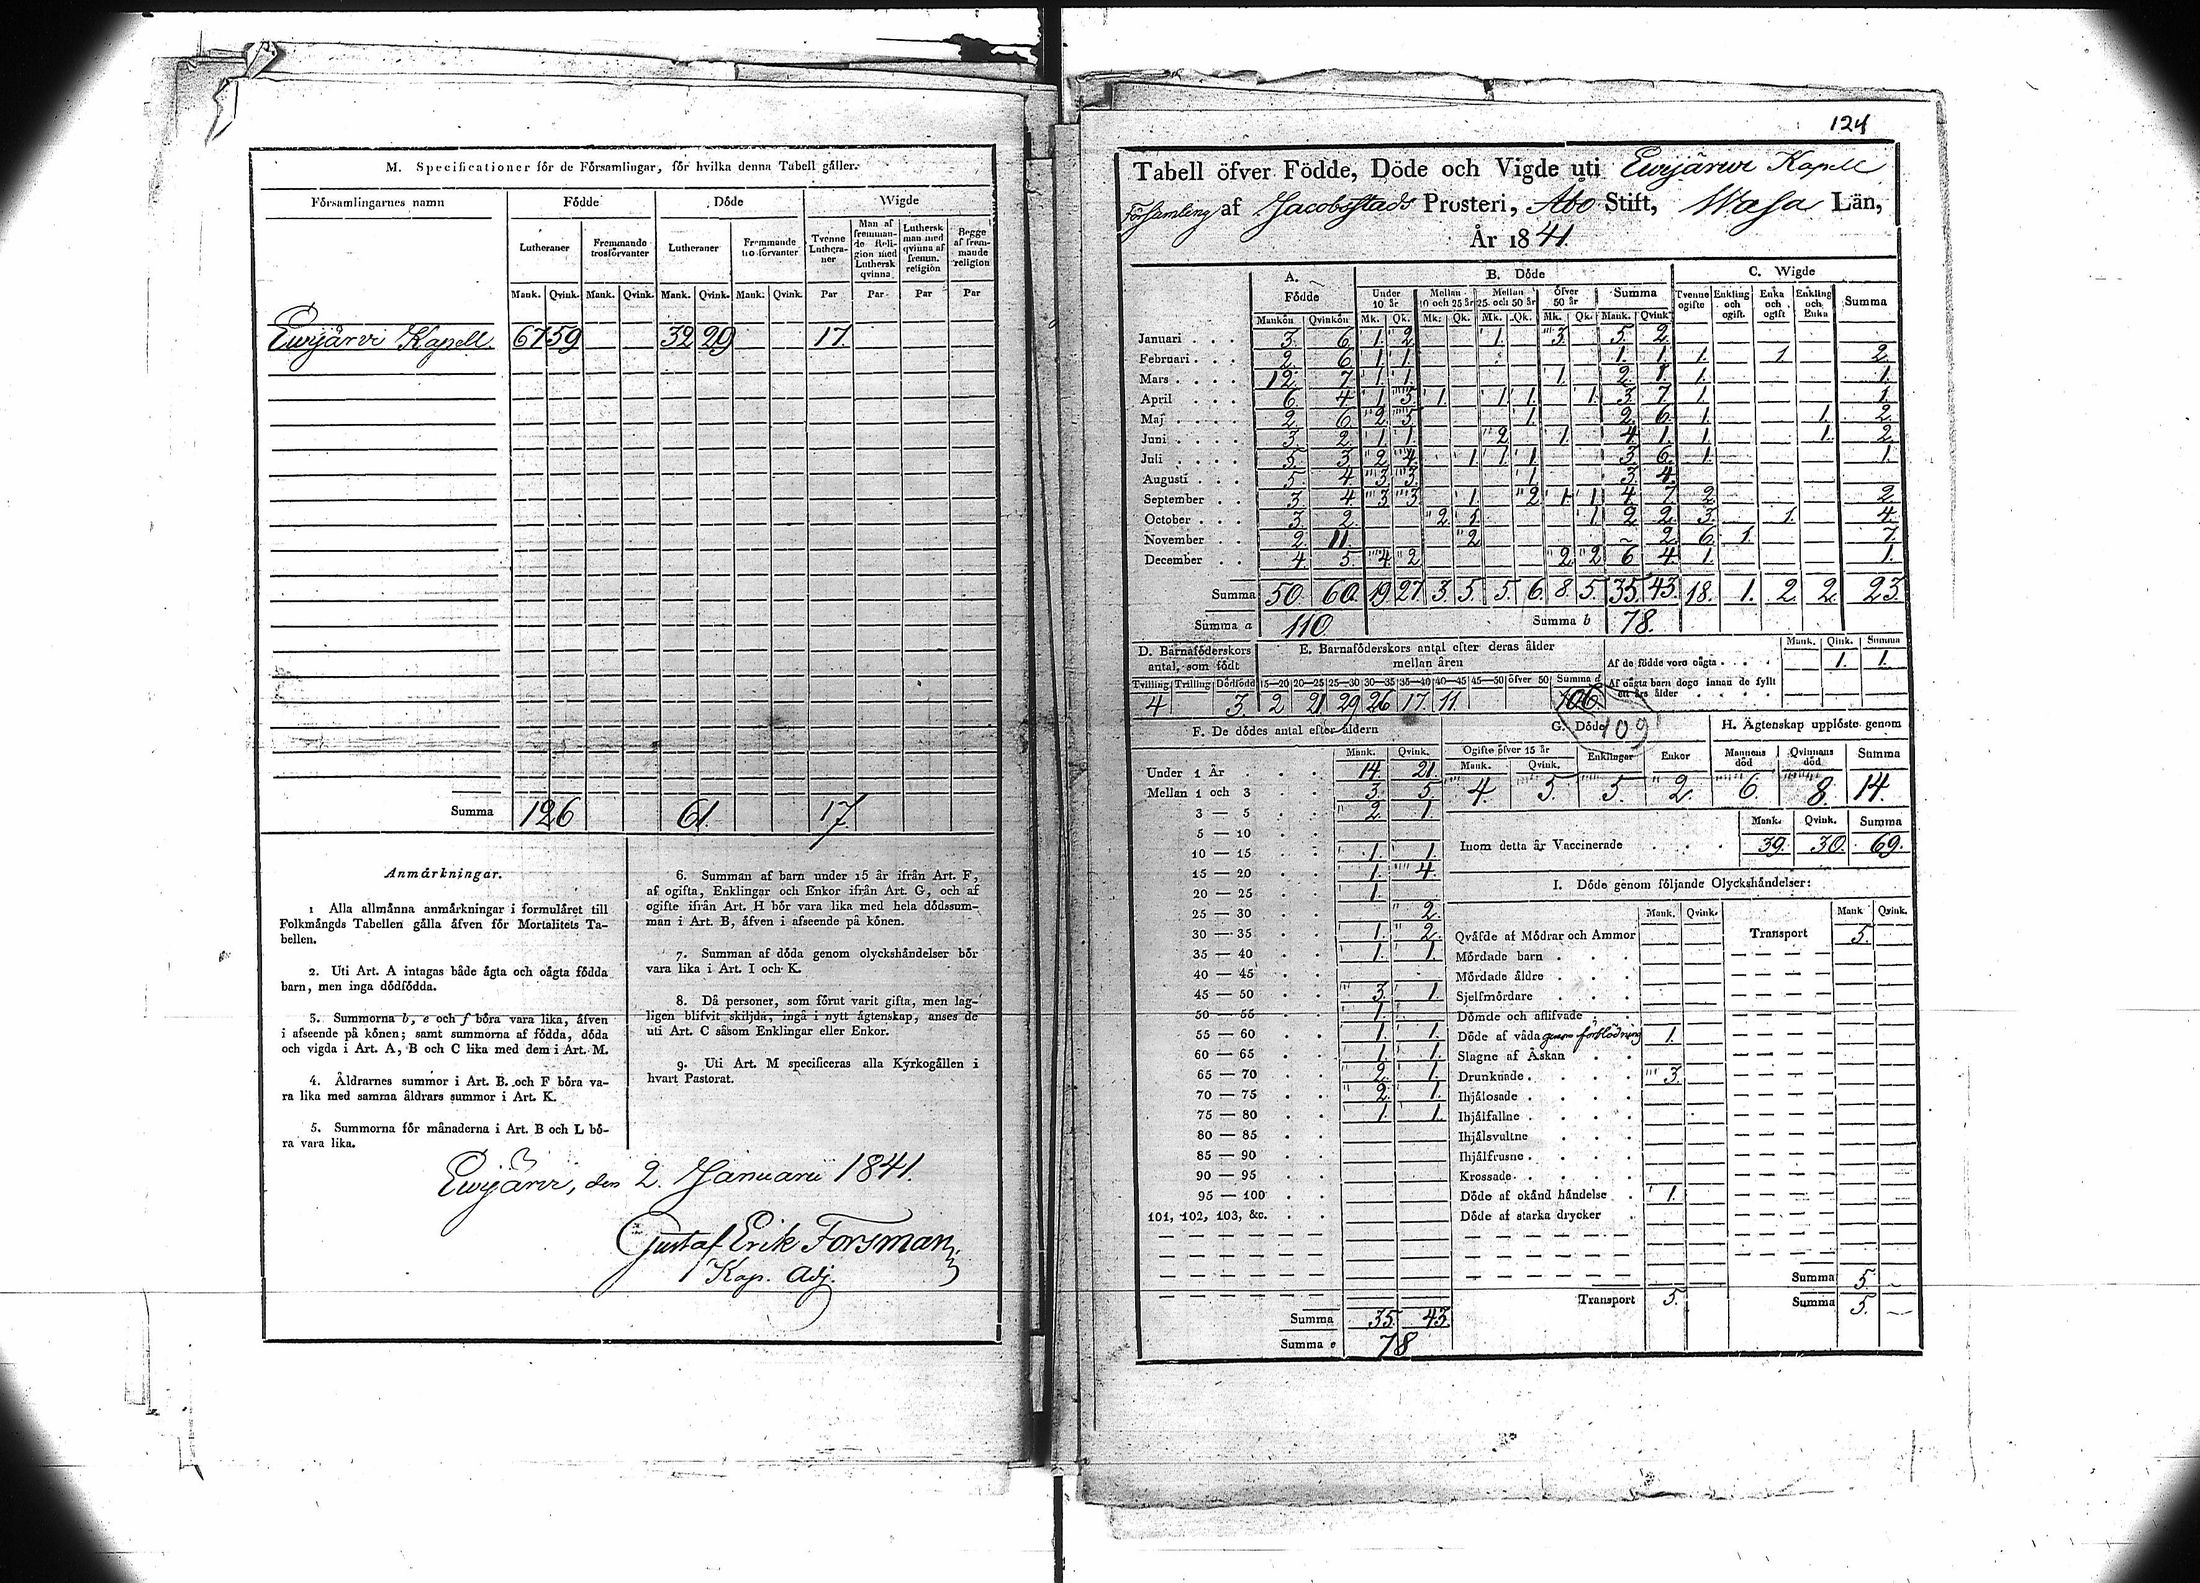 M. Specificationer för de Församlingar, för hvilka denna Tabell gäller.
Församlingarnes namn Födde Döde Wigde
Lutheraner Fremmande trosförvanter Lutheraner Fremmande trosförvanter Tvenne Lutheraner Man af fremmande Religion med Luthersk qvinna Luthersk man med qvinna af fremm. religion Begge af fremmande religion
Mank. Qvink. Mank. Qvink. Mank. Qvink. Mank. Qvink. Par Par Par Par
Ewijärvi Kapell 67 59 32 29 17.
Summa 126 61. 17.
Anmärkningar.
1 Alla allmänna anmärkningar i formuläret till
Folkmängds Tabellen gälla äfven för Mortalitets Ta-
bellen.
2. Uti Art. A intagas både ägta och oägta födda
barn, men inga dödfödda.
3. Summorna b, e och f böra vara lika, äfven
i afseende på könen; samt summorna af födda, döda
och vigda i Art. A, B och C lika med dem i Art. M.
4. Åldrarnes summor i Art. B. och F böra va-
ra lika med samma åldrars summor i Art. K.
5. Summorna för månaderna i Art. B och L bö-
ra vara lika.
6. Summan af barn under 15 år ifrån Art. F,
af ogifta, Enklingar och Enkor ifrån Art. G, och af
ogifte ifrån Art. H bör vara lika med hela dödssum-
man i Art. B, äfven i afseende på könen.
7. Summan af döda genom olyckshändelser bör
vara lika i Art. I och K.
8. Då personer, som förut varit gifta, men lag-
ligen blifvit skiljda, ingå i nytt ägtenskap, anses de
uti Art. C såsom Enklingar eller Enkor.
9. Uti Art. M specificeras alla Kyrkogällen i
hvart Pastorat.
Ewijärvi, den 2. Januarii 1841.
Gustaf Erik Forsman
Kap. Adj.
124
Tabell öfver Födde, Döde och Vigde uti Ewijärvi Kapell
Församling af Jacobsstads Prosteri, Åbo Stift, Wasa Län,
År 1841.
A. Födde B. Döde C. Wigde
Under 10 år Mellan 10 och 25 år Mellan 25 och 50 år Öfver 50 år Summa Tvenne ogifte Enkling och ogift. Enka och ogift Enkling och Enka Summa
Mankön Qvinkön Mk. Qk. Mk. Qk. Mk. Qk. Mk. Qk. Mank. Qvink.
Januari 3. 6. 1. 2. 1. 3. 5. 2.
Februari 2. 6. 1. 1. 1. 1. 1. 1. 2.
Mars 12. 7. 1. 1. 1. 2. 1. 1. 1.
April 6. 4. 1. 3. 1. 1. 1. 1. 3. 7. 1. 1.
Maj 2. 6. 2. 5. 1. 2. 6. 1. 1. 2.
Juni 3. 2. 1. 1. 2. 1. 4. 1. 1. 1. 2.
Juli 5. 3. 2. 4. 1. 1. 1. 3. 6. 1. 1.
Augusti 5. 4. 3. 3. 1. 3. 4.
September 3. 4. 3. 3. 1. 2. 1. 1. 4. 7. 2. 2.
October 3. 2. 2. 1. 1. 2. 2. 3. 1. 4.
November 2. 11. 2. ~ 2. 6. 1. 7.
December 4. 5. 4. 2. 2. 2. 6. 4. 1. 1.
Summa 50. 60. 19 27 3. 5. 5. 6. 8. 5. 35. 43. 18. 1. 2. 2. 23.
Summa a 110. Summa b 78.
D. Barnaföderskors antal, som födt
Tvilling Trilling Dödfödd
4 3.
E. Barnaföderskors antal efter deras ålder mellan åren
15—20 20—25 25—30 30—35 35—40 40—45 45—50 öfver 50 Summa d
2 21 29 26 17. 11. 106.
109
Mank. Qink. Summa
Af de födde voro oägta 1. 1.
Af oägta barn dogo innan de fyllt ett års ålder
F. De dödes antal efter åldern
Mank. Qvink.
Under 1 År 14. 21.
Mellan 1 och 3 3. 5.
3 — 5 2. 1.
5 — 10
10 — 15 1. 1.
15 — 20 1. 4.
20 — 25 1.
25 — 30 2.
30 — 35 1. 2.
35 — 40 1. 1.
40 — 45
45 — 50 3. 1.
50 — 55 1.
55 — 60 1. 1.
60 — 65 1. 1.
65 — 70 2. 1.
70 — 75 2. 1.
75 — 80 1. 1.
80 — 85
85 — 90
90 — 95
95 — 100
101, 102, 103, &c.
Summa 35. 43.
Summa e 78
G. Döde
Ogifte öfver 15 år Enklingar Enkor
Mank. Qvink.
4. 5. 5. 2.
H. Ägtenskap upplöste genom
Mannens död Qvinnans död Summa
6. 8. 14.
Mank. Qvink. Summa
Inom detta år Vaccinerade 39. 30. 69.
I. Döde genom följande Olyckshändelser:
Mank. Qvink. Mank Qvink.
Qväfde af Mödrar och Ammor Transport 5.
Mördade barn
Mördade äldre
Sjelfmördare
Dömde och aflifvade
Döde af våda genom förblödning 1.
Slagne af Åskan
Drunknade 3.
Ihjälosade
Ihjälfallne
Ihjälsvultne
Ihjälfrusne
Krossade
Döde af okänd händelse 1.
Döde af starka drycker
Summa 5. ~
Transport 5. Summa 5. ~